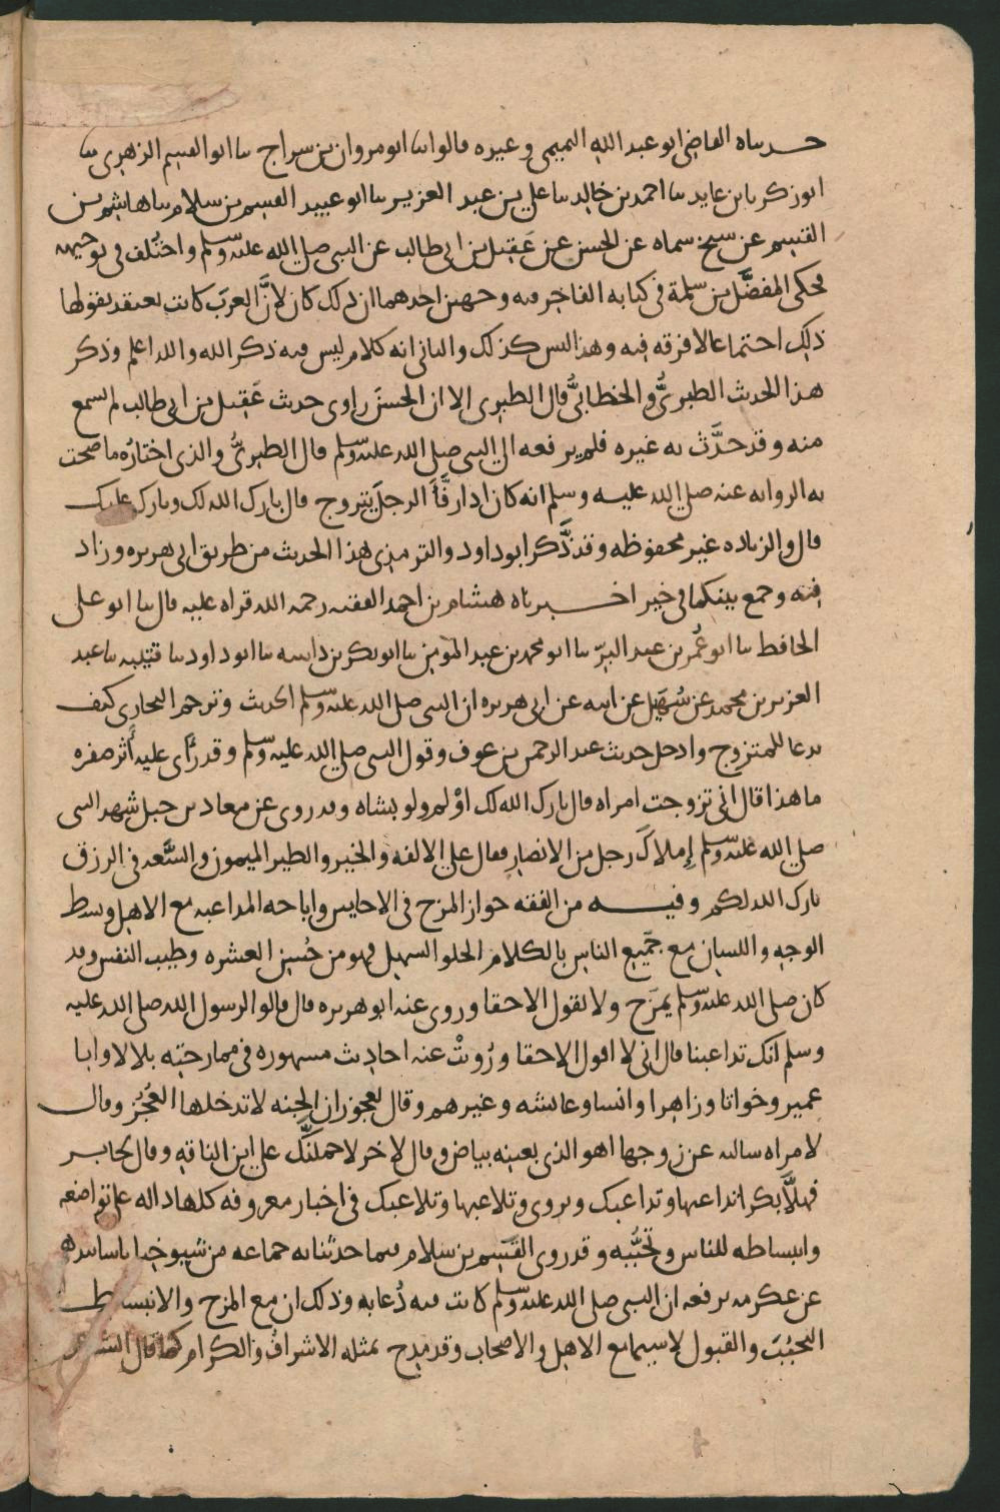 حدثناه القاضي ابو عبد الله التميمي وغيره قالوا ثنا ابو مروان بن سراج ثنا ابو القسم الزهري ثنا
ابو زكريا بن عايد ثنا احمد بن خالد ثنا علي بن عبد العزيز ثنا ابو عبيد القسم بن سلام ثنا هاشم بن
القسم عن شيخ سماه عن الحسن عن عَقيل بن ابي طالب عن النبي صلى الله عليه وسلم واختُلف في توجيهه
فحكى المفضَّل بن سلمة في كتابه الفاخر فيه وجهين احدهما ان ذلك كان لانَّ العرب كانت تعتقد بقولها
ذلك اجتماعا لا فرقه فيه وهذا ليس كذلك والثاني انه كلام ليس فيه ذكر الله والله اعلم وذكر
هذا الحديث الطبريُّ والخطابيُّ قال الطبري الا ان الحسن راوي حديث عَقيل بن ابي طالب لم يسمع
منه وقد حدَّث به غيره فلم يرفعه الى النبي صلى الله عليه وسلم قال الطبريُّ والذي اختاره ما صحت
به الروايه عنه صلى الله عليه وسلم انه كان اذا رفَّأ الرجل يتزوج قال بارك الله لك وبارك عليك
قال والزياده غير محفوظه وقد ذَّكر ابو داود والترمذي هذا الحديث من طريق ابي هريره وزاد
فيه وجمع بينكما في خير اخبرناه هشام بن احمد الفقيه رحمه الله قراه عليه قال ثنا ابو علي
الحافظ ثنا ابو عُمر بن عبد البرّ ثنا ابو محمد بن عبد المؤمن ثنا ابو بكر بن داسه ثنا ابو داود ثنا قتيبه ثنا عبد
العزيز بن محمد عن سُهَيل عن ابيه عن ابي هريره ان النبي صلى الله عليه وسلم الحديث وترجم البخاري كيف
يدعا للمتزوج وادخل حديث عبد الرحمن بن عوف وقول النبي صلى الله عليه وسلم وقد رَأى عليه أثر صفره
ما هذا قال اني تزوجت امراه قال بارك الله لك اوْلم ولو بشاه وقد روي عن معاذ بن جبل شهد النبي
صلى الله عليه وسلم إملاكَ رجل من الانصار فقال على الالفه والخير والطير الميمون والسَّعه في الرزق
بارك الله لكم وفيه من الفقه جواز المزح في الاحايين واباحه المداعبه مع الاهل وبسط
الوجه واللسان مع جَميع الناس بالكلام الحلو السهل فهو من حُسن العشره وطيب النفس وقد
كان صلى الله عليه وسلم يمزَح ولا يقول الا حقا وروى عنه ابو هريره قال قالوا لرسول الله صلى الله عليه
وسلم انك تداعبنا قال اني لا اقول الا حقا ورُوِتْ عنه احاديث مشهوره في ممازحته بلالا وابا
عمير وخواتا وزاهرا وانسا وعائشه وغيرهم وقال لعجوز ان الجنه لا تدخلها العُجُز وقال
لامراه سالته عن زوجها اهو الذي بعينه بياض وقال لاخر لاحملنَّك على ابن الناقه وقال لجابر
فهلَّا بكرا تداعبها وتداعبك ويروى وتلاعبها وتلاعبك في اخبار معروفه كلها داله على تواضعه
وانبساطه للناس وتحبُّبه وقد روى القَسِم بن سلام مما حدثنا به جماعه من شيوخنا باسانيده
عن عكرمه يرفعه ان النبي صلى الله عليه وسلم كانت فيه دُعابه وذلك ان مع المزح والانبساط
التحبُبَ والقبول لا سيما مع الاهل والاصحاب وقد مدح بمثله الاشراف والكرام كما قال الشاعر